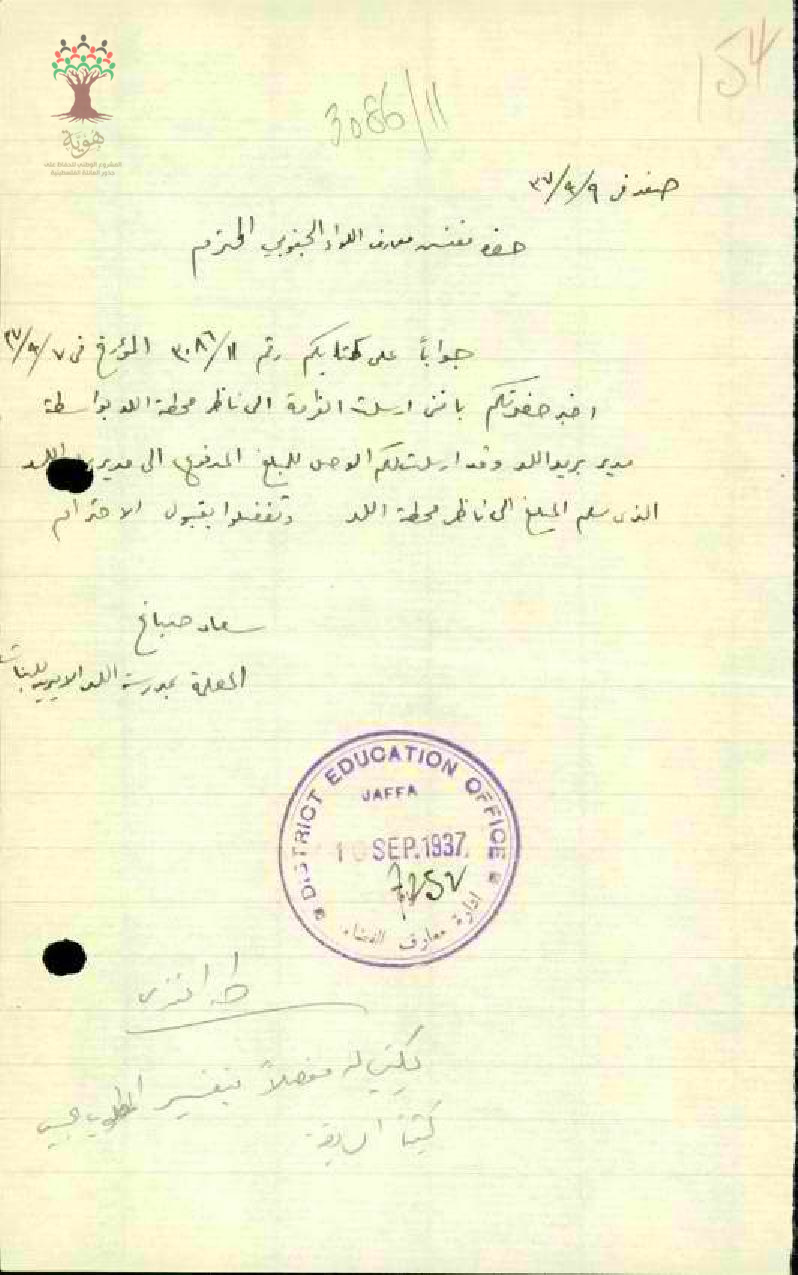 154
3086/11
هوية
المشروع الوطني للحفاظ على
جذور العائلة الفلسطينية
صفد في ٩/٩/٣٧
حضرة مفتش معارف اللواء الجنوبي المحترم
جواباً على كتابكم رقم ٣٠٨٦/١١ المؤرخ في ٧/٩/٣٧
اخبر حضرتكم بانني ارسلت الغرامة الى ناظر محطة اللد بواسطة
مدير بريد اللد وقد ارسلت لكم الوصل للمبلغ المدفوع الى مدير بريد اللد
الذي سلم المبلغ الى ناظر محطة اللد وتفضلوا بقبول الاحترام
سعاد صباغ
المعلمة بمدرسة اللد الاميرية للبنات
DISTRICT EDUCATION OFFICE
JAFFA
10 SEP. 1937
ادارة معارف القضاء
طه افندي
يكتب له مفصلاً بتفسير المطلوب حسب
كتبنا السابقة